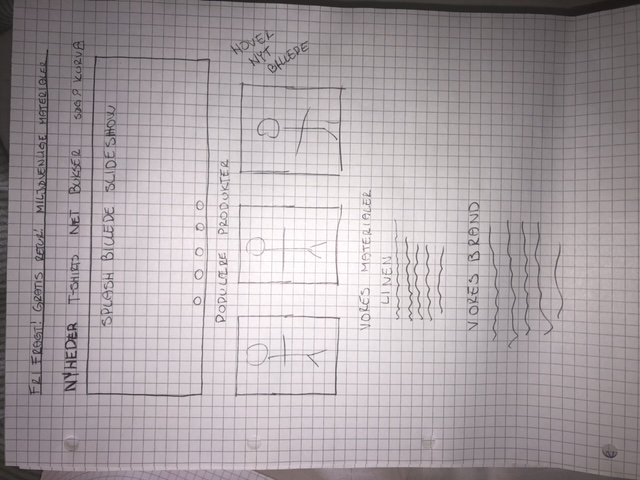 FRI FRAGT! GRATIS RETUR! MILJØVENLIGE MATERIALER
NYHEDER T-SHIRTS NET BUKSER SØG? KURV
SPLASH BILLEDE SLIDESHOW
POPULÆRE PRODUKTER
HOVER
NYT
BILLEDE
VORES MATERIALER
LINEN
VORES BRAND